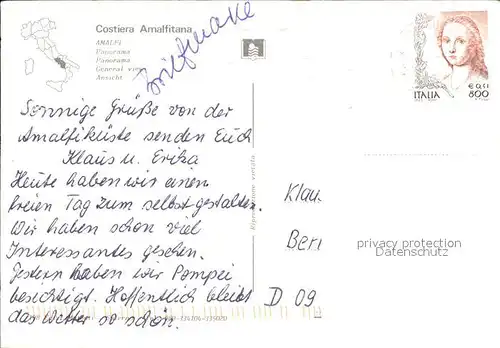 Costiera Amalfitana
AMALFI
Panorama
Panorama
General view
Ansicht
Briefmarke
ITALIA
€ 0,41
800
Sonnige Grüße von der
Amalfiküste senden Euch
Klaus u. Erika
Heute haben wir einen
freien Tag zum selbst gestalten.
Wir haben schon viel
Interessantes gesehen.
Gestern haben wir Pompei
besichtigt. Hoffentlich bleibt
das Wetter so schön.
Riproduzione vietata
Klau
Beri
D 09
privacy protection
Datenschutz